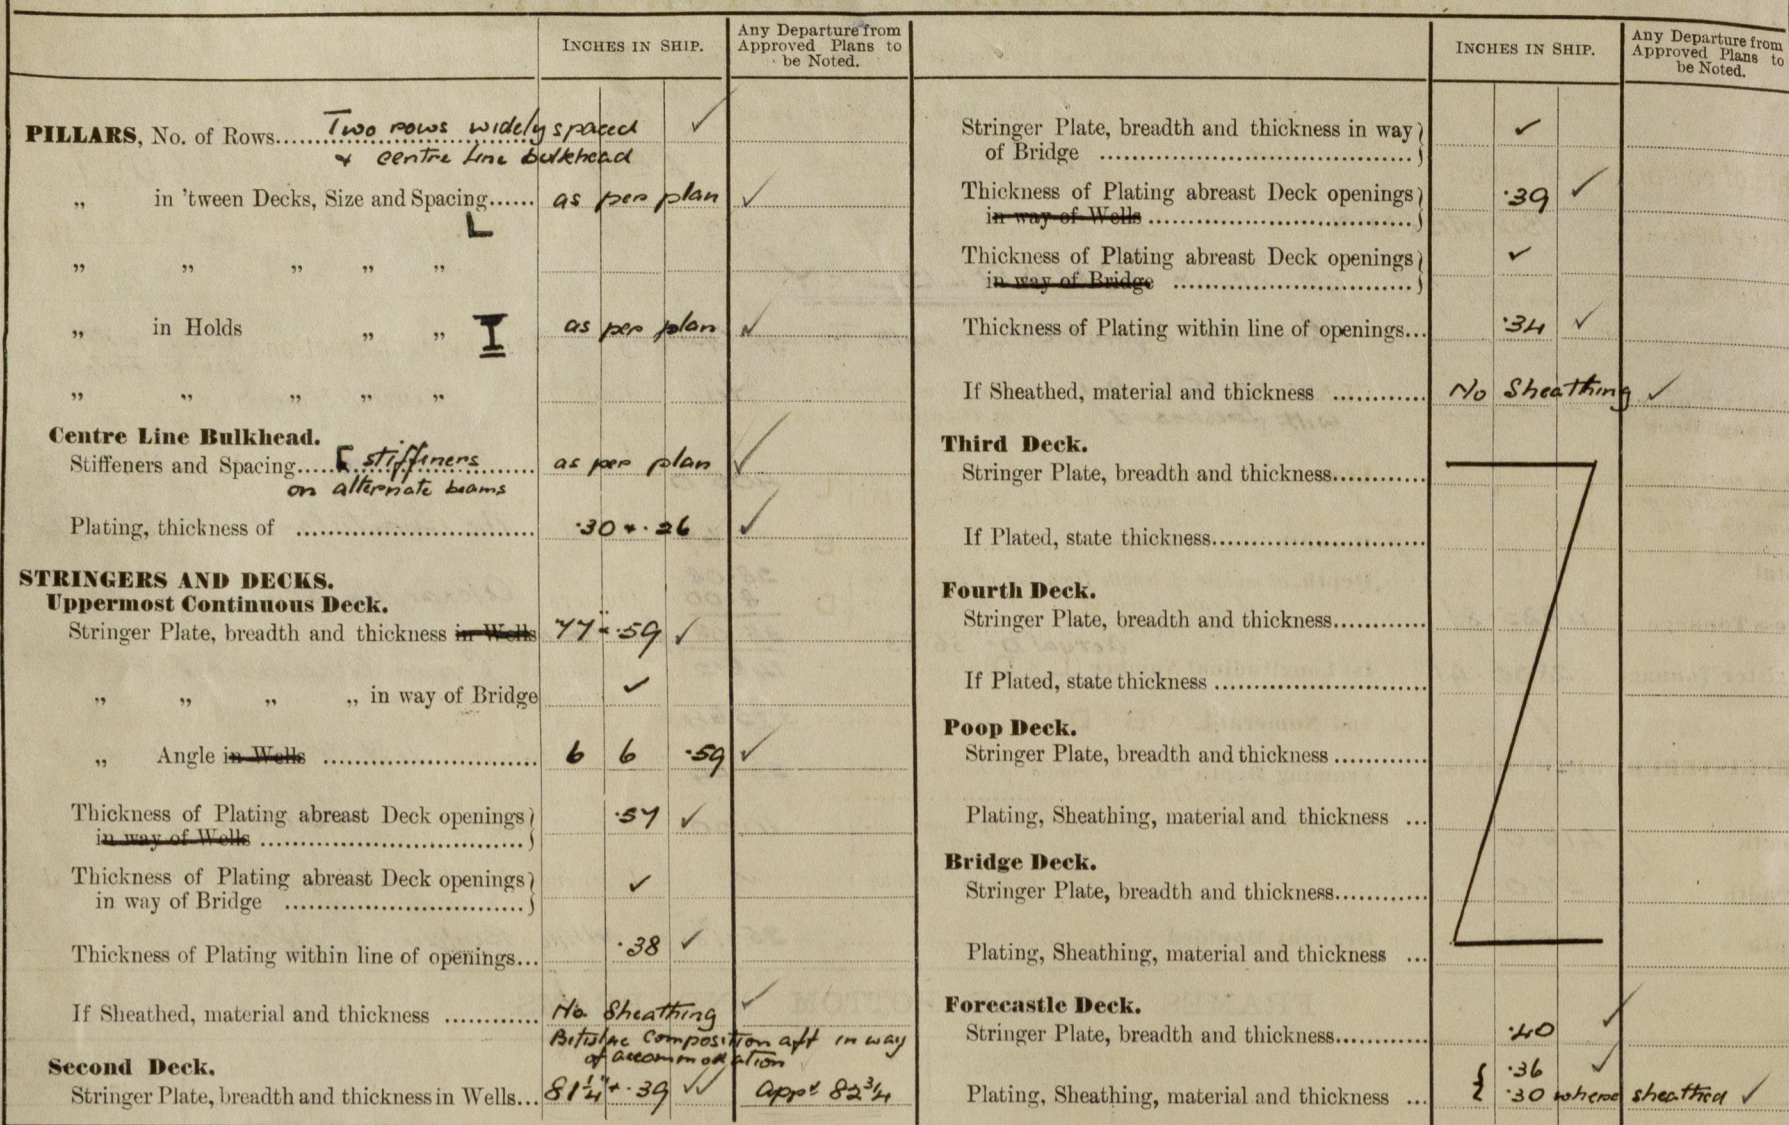 INCHES IN SHIP.
Any Departure from
Approved Plans to
be Noted.
PILLARS, No. of Rows...... Two rows widely spaced ✓
& centre line bulkhead
„ in 'tween Decks, Size and Spacing...... as per plan ✓
L
„ „ „ „ „
„ in Holds „ „ I as per plan ✓
„ „ „ „ „
Centre Line Bulkhead.
Stiffeners and Spacing..... [ stiffeners as per plan ✓
on alternate beams
Plating, thickness of .30 & .26 ✓
STRINGERS AND DECKS.
Uppermost Continuous Deck.
Stringer Plate, breadth and thickness in Wells 77" × .59 ✓
„ „ „ „ in way of Bridge ✓
„ Angle in Wells 6 6 .59 ✓
Thickness of Plating abreast Deck openings } .57 ✓
in way of Wells
Thickness of Plating abreast Deck openings } ✓
in way of Bridge
Thickness of Plating within line of openings... .38 ✓
If Sheathed, material and thickness No Sheathing ✓
Composition aft in way
of accommodation
Second Deck.
Stringer Plate, breadth and thickness in Wells... 81¼" × .39 ✓✓ Appd 82¾
INCHES IN SHIP.
Any Departure from
Approved Plans to
be Noted.
Stringer Plate, breadth and thickness in way } ✓
of Bridge
Thickness of Plating abreast Deck openings } .39 ✓
in way of Wells
Thickness of Plating abreast Deck openings } ✓
in way of Bridge
Thickness of Plating within line of openings... .34 ✓
If Sheathed, material and thickness No Sheathing ✓
Third Deck.
Stringer Plate, breadth and thickness
If Plated, state thickness
Fourth Deck.
Stringer Plate, breadth and thickness
If Plated, state thickness
Poop Deck.
Stringer Plate, breadth and thickness
Plating, Sheathing, material and thickness ...
Bridge Deck.
Stringer Plate, breadth and thickness
Plating, Sheathing, material and thickness ...
Forecastle Deck.
Stringer Plate, breadth and thickness .40 ✓
{ .36 ✓
Plating, Sheathing, material and thickness ... .30 where sheathed ✓